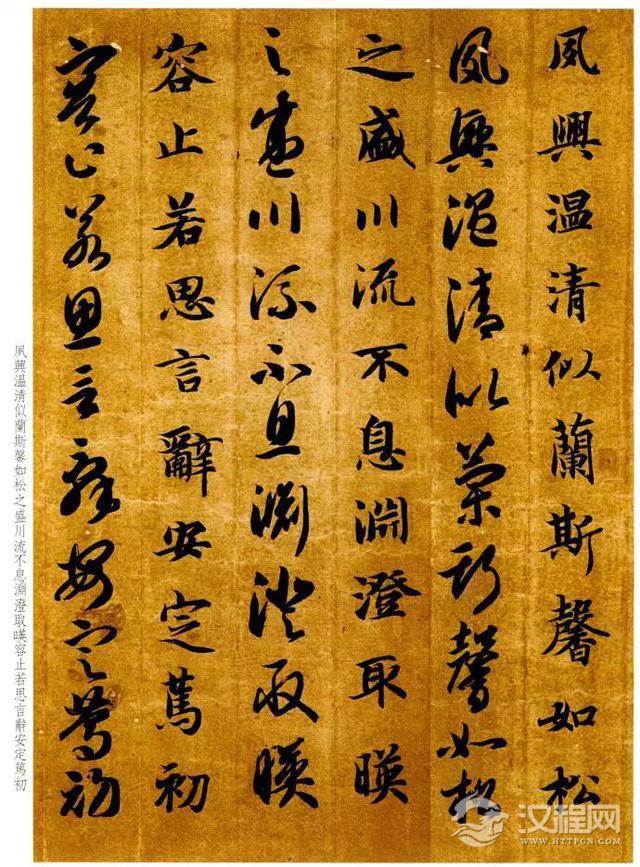 夙興温清似蘭斯馨如松
夙興温清似蘭斯馨如松
之盛川流不息淵澄取暎
之盛川流不息淵澄取暎
容止若思言辭安定篤初
容止若思言辭安定篤初
夙興溫清似蘭斯馨如松之盛川流不息淵澄取暎容止若思言辭安定篤初
汉程网
WWW.HTTPCN.COM